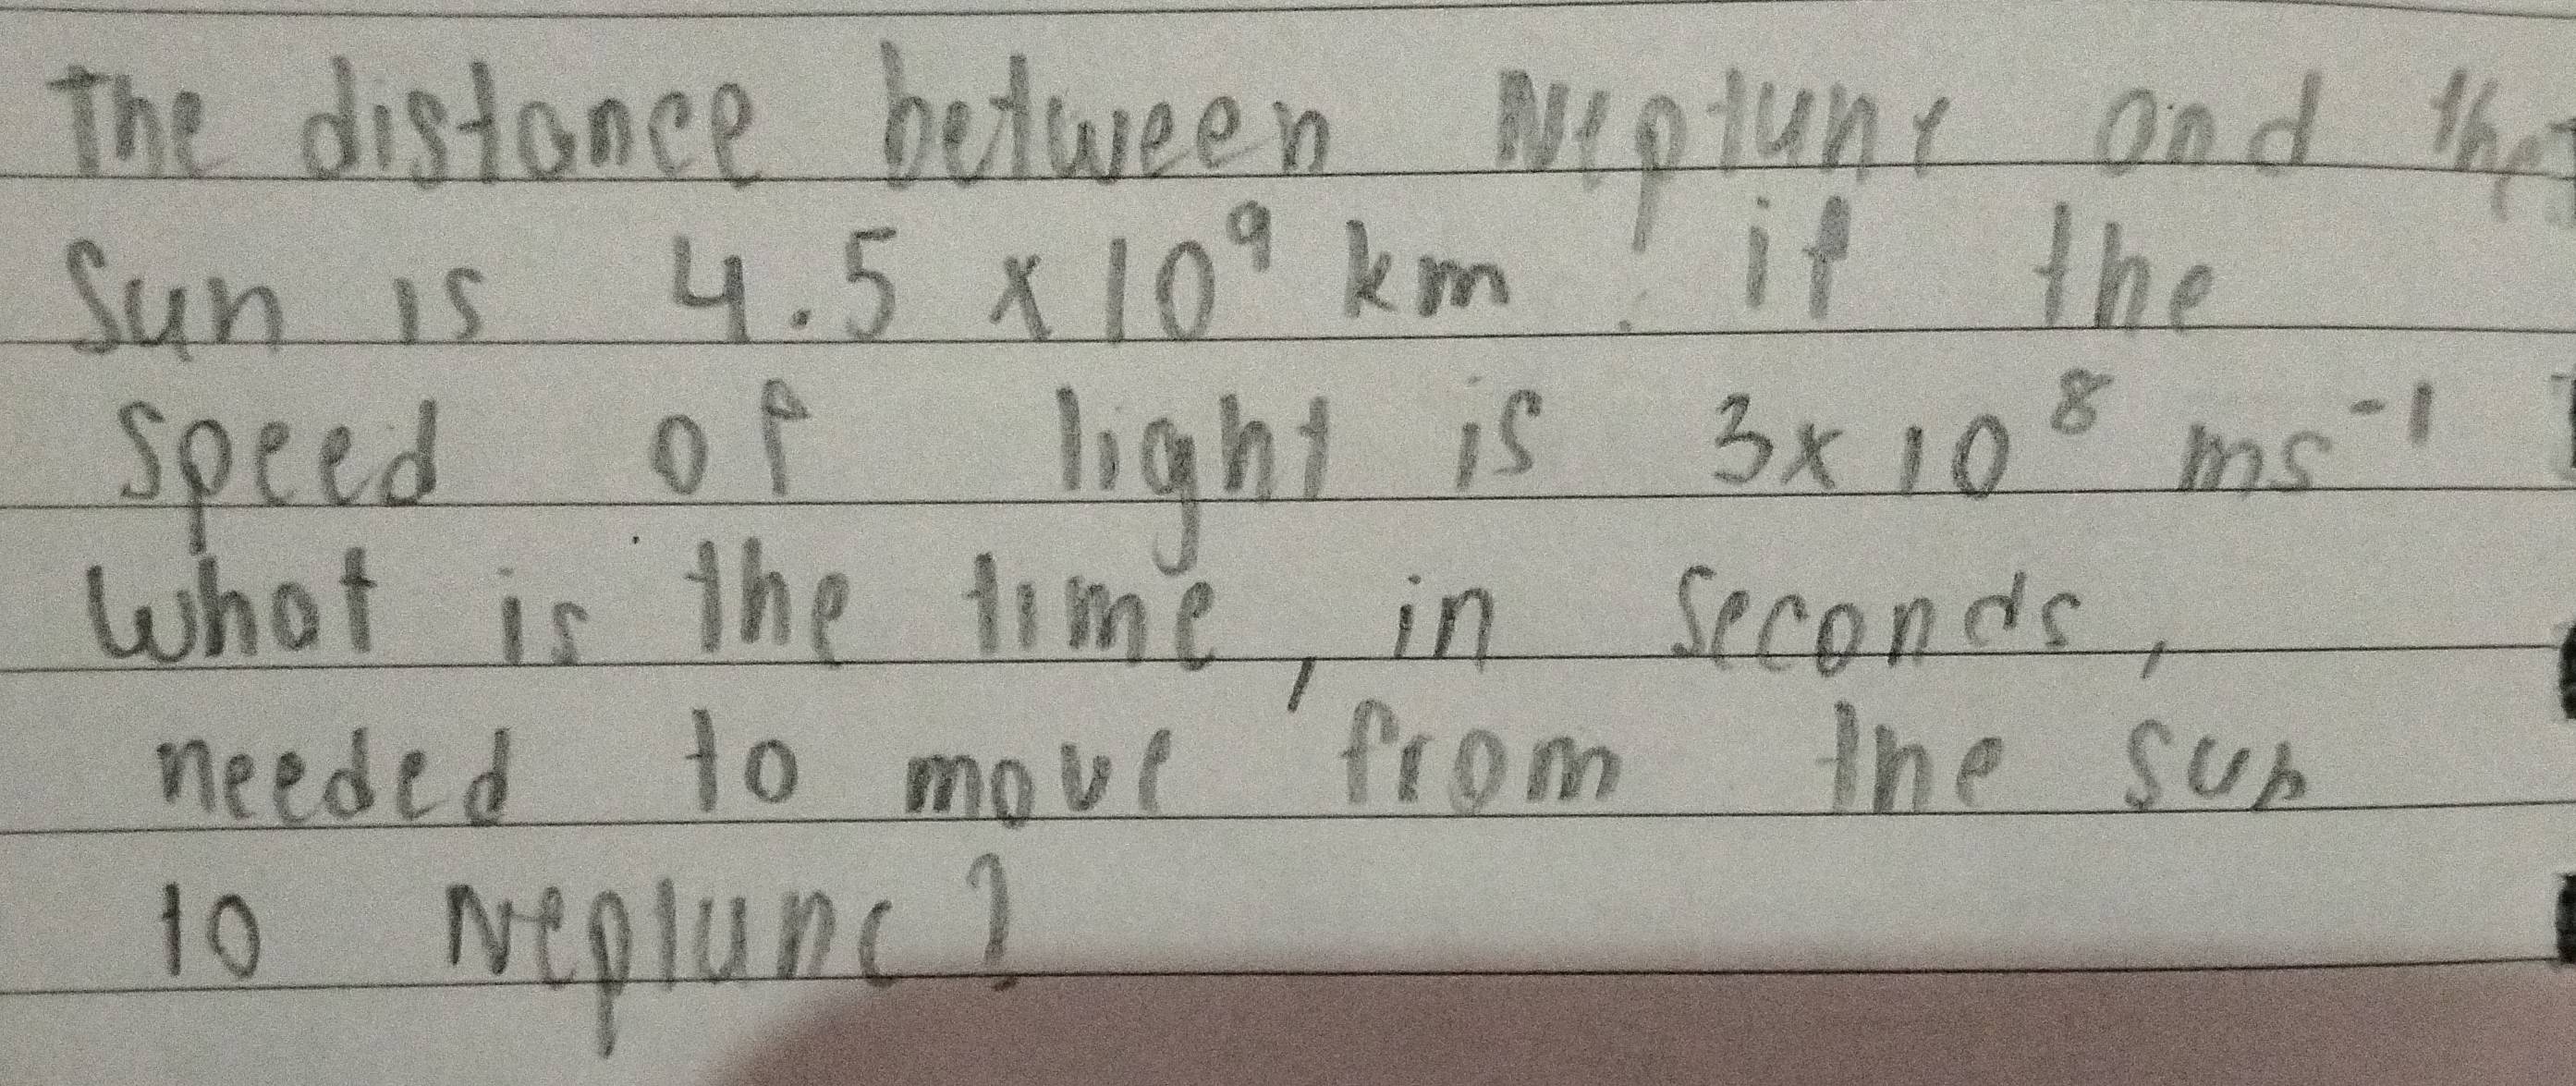 The distance between Neptune and the
Sun is 4.5 x 10⁹ km. if the
speed of light is 3x 10⁸ ms⁻¹
What is the time, in seconds,
needed to move from the sun
to Neptune?